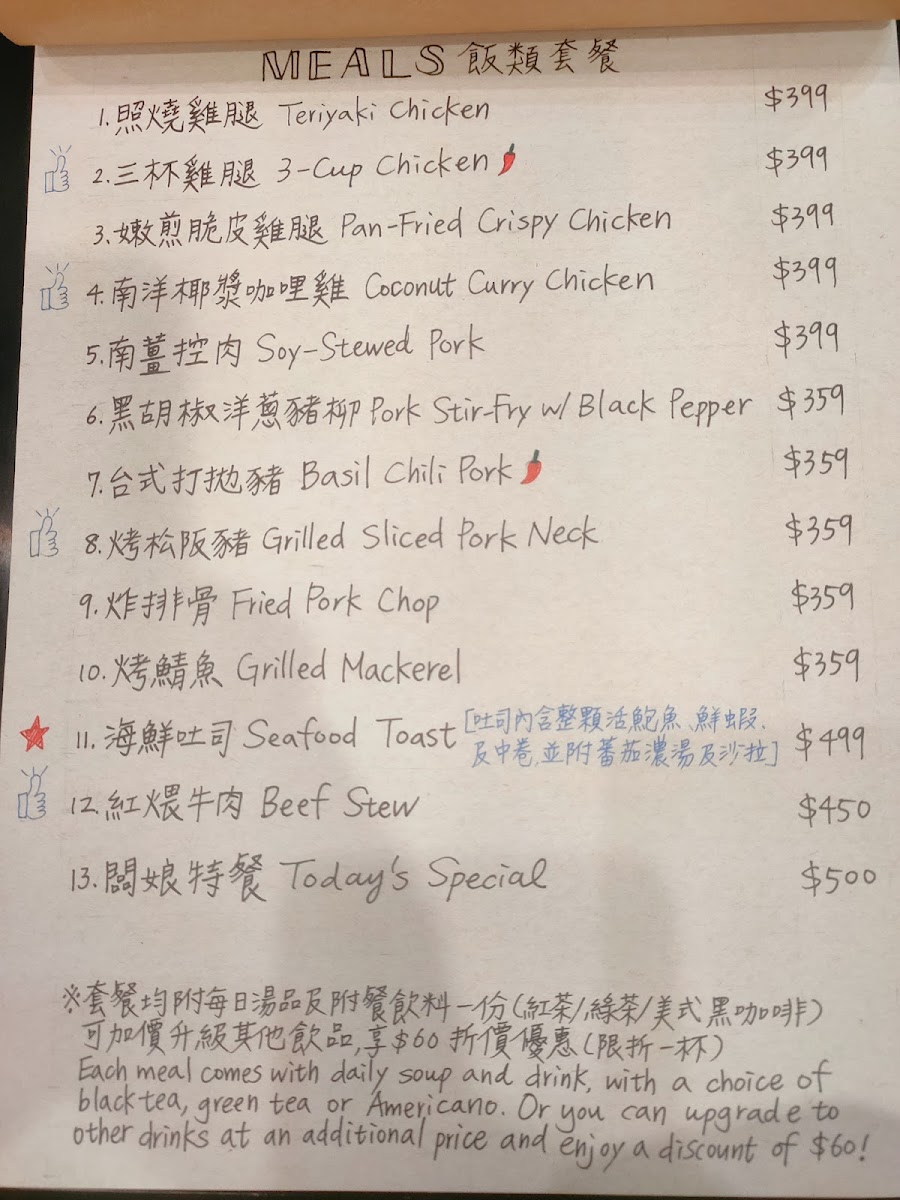 MEALS 飯類套餐
1.照燒雞腿 Teriyaki Chicken $399
2.三杯雞腿 3-Cup Chicken $399
3.嫩煎脆皮雞腿 Pan-Fried Crispy Chicken $399
4.南洋椰漿咖哩雞 Coconut Curry Chicken $399
5.南薑控肉 Soy-Stewed Pork $399
6.黑胡椒洋蔥豬柳 Pork Stir-Fry w/ Black Pepper $359
7.台式打拋豬 Basil Chili Pork $359
8.烤松阪豬 Grilled Sliced Pork Neck $359
9.炸排骨 Fried Pork Chop $359
10.烤鯖魚 Grilled Mackerel $359
11.海鮮吐司 Seafood Toast [吐司內含整顆活鮑魚、鮮蝦、 $499
及中卷,並附蕃茄濃湯及沙拉]
12.紅煨牛肉 Beef Stew $450
13.闆娘特餐 Today's Special $500
※套餐均附每日湯品及附餐飲料一份(紅茶/綠茶/美式黑咖啡)
可加價升級其他飲品,享$60折價優惠(限折一杯)
Each meal comes with daily soup and drink, with a choice of
black tea, green tea or Americano. Or you can upgrade to
other drinks at an additional price and enjoy a discount of $60!